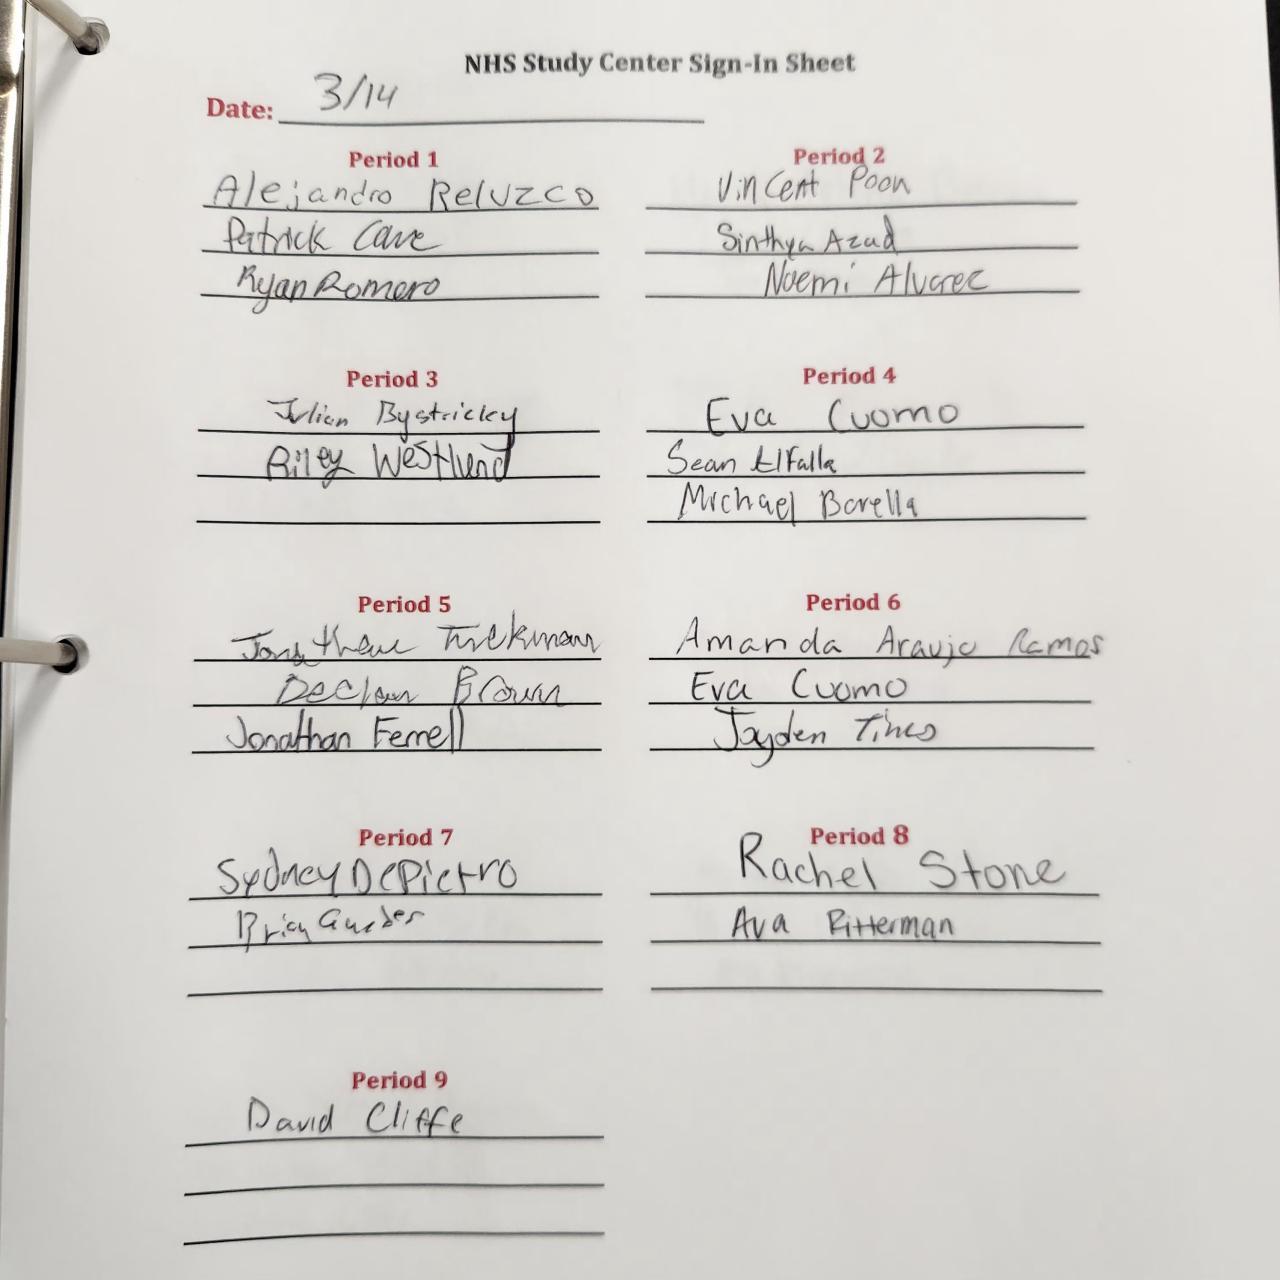 NHS Study Center Sign-In Sheet
Date: 3/14
Period 1
Alejandro Reluzco
Patrick Cave
Ryan Romero
Period 2
Vincent Poon
Sinthya Azad
Noemi Alvarez
Period 3
Julian Bystricky
Riley Westlund
Period 4
Eva Cuomo
Sean Elfalla
Michael Borella
Period 5
Declan Brown
Jonathan Ferrell
Period 6
Amanda Araujo Ramos
Eva Cuomo
Jayden Tineo
Period 7
Sydney DePietro
Brian
Period 8
Rachel Stone
Ava Ritterman
Period 9
David Cliffe